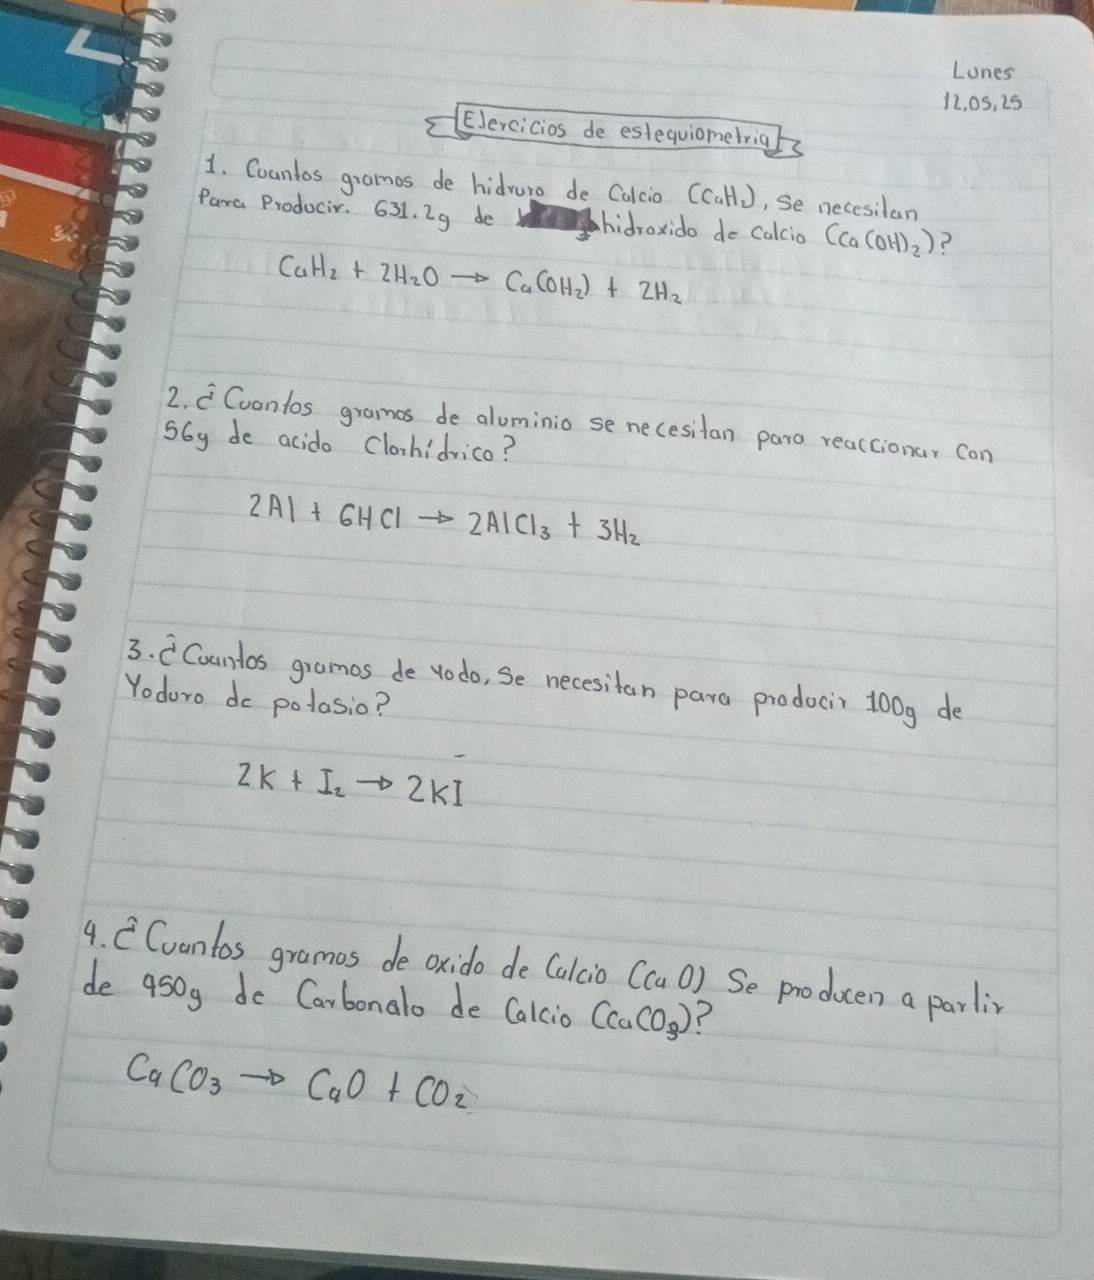 Lunes
12,05,25
Ejercicios de estequiometria
1. Cuantos gramos de hidruro de Calcio (CaH₂), se necesitan
Para Producir. 631.2g de hidroxido de calcio (Ca(OH)₂)?
CaH₂ + 2H₂O → Ca(OH₂) + 2H₂
2. ¿Cuantos gramos de aluminio se necesitan para reaccionar con
56g de acido Clorhídrico?
2Al + 6HCl → 2AlCl₃ + 3H₂
3. ¿Cuantos gramos de Yodo, se necesitan para producir 100g de
Yoduro de potasio?
2K + I₂ → 2KI
4. ¿Cuantos gramos de oxido de Calcio (CaO) se producen a partir
de 950g de Carbonato de Calcio (CaCO₃)?
CaCO₃ → CaO + CO₂